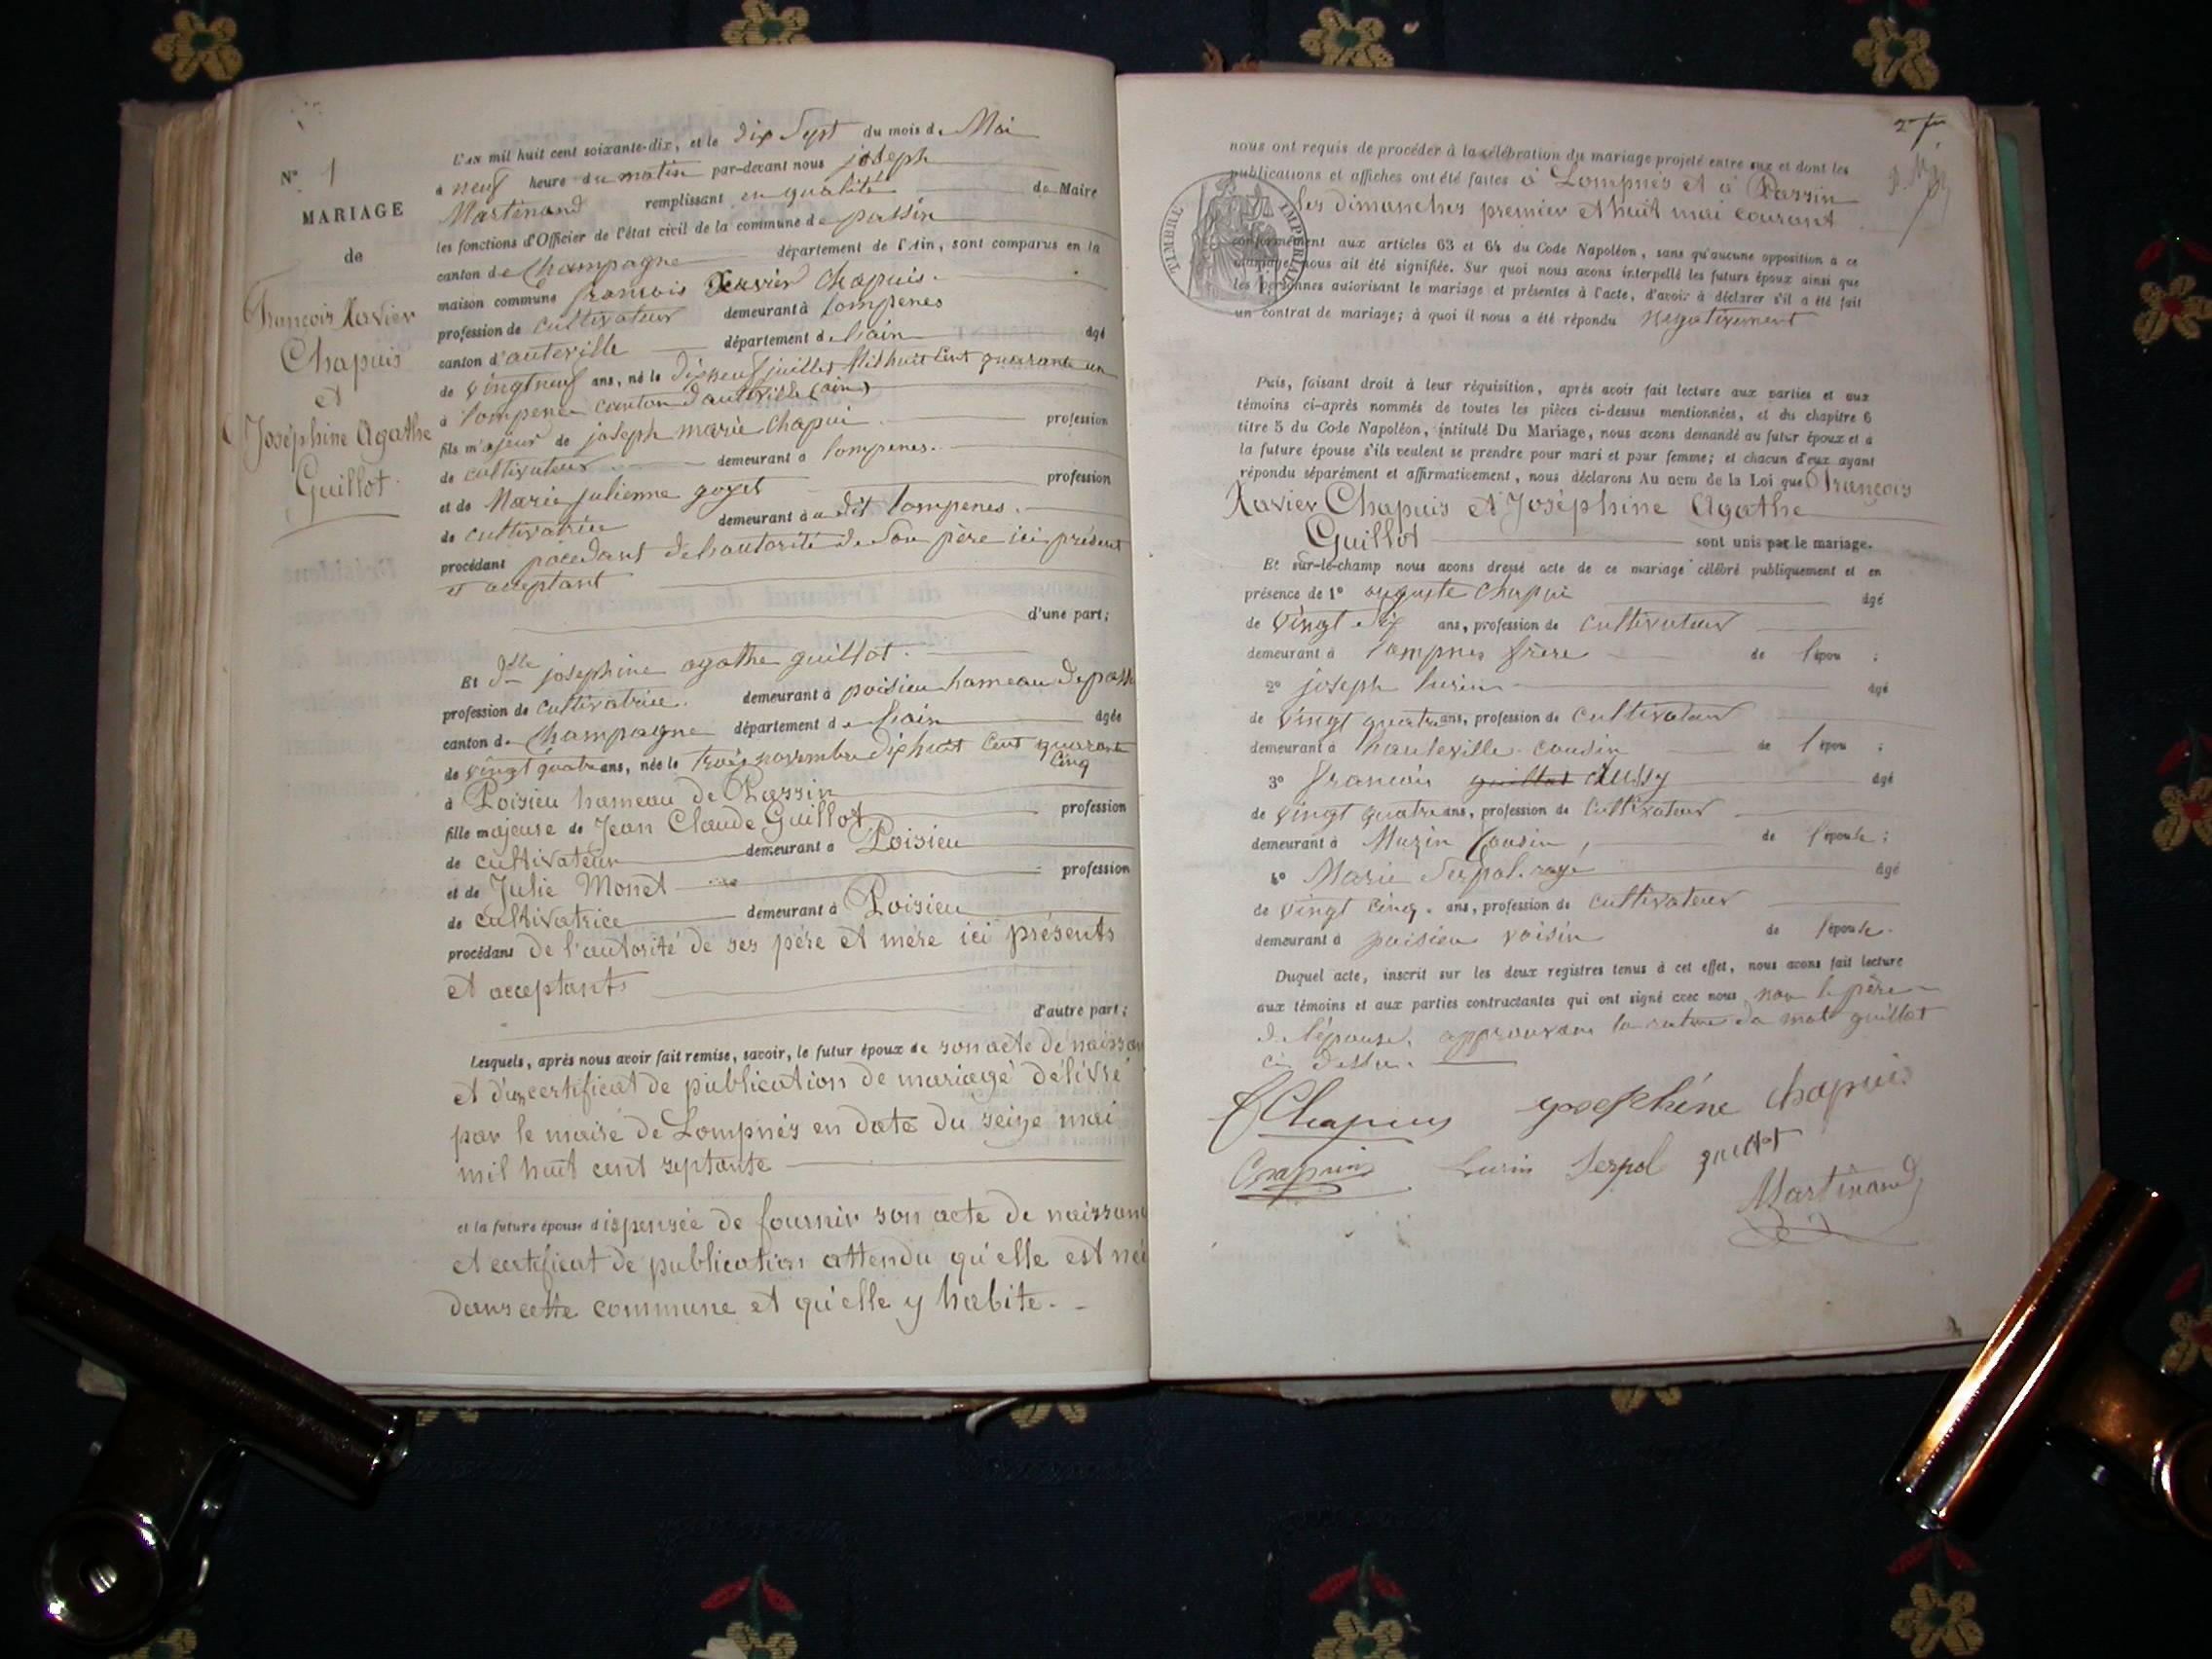 N° 1
MARIAGE
de
François Xavier
Chapuis
et
Joséphine Agathe
Guillot
L'AN mil huit cent soixante-dix, et le dix sept du mois de Mai
à neuf heure du matin par-devant nous joseph
Martinand remplissant en qualité de Maire
les fonctions d'Officier de l'état civil de la commune de passin
canton de Champagne département de l'Ain, sont comparus en la
maison commune francois Xavier Chapuis.
profession de cultivateur demeurant à lompenes
canton d'auteville département de lain âgé
de vingt neuf ans, né le dix neuf juillet Mil huit Cent quarante un
à lompenes canton d'auteville (ain)
fils majeur de joseph marie Chapui profession
de cultivateur demeurant à lompenes.
et de Marie julienne goyet profession
de cultivatrice demeurant à u dit lompenes.
procédant pocedant de lautorité de Son père ici présent
et acceptant
d'une part;
Et dlle josephine agathe guillot.
profession de cultivatrice. demeurant à poisieu hameau de pass
canton de Champagne département de lain âgée
de vingt quatre ans, née le trois novembre dix huit Cent quarante
Cinq
à Poisieu hameau de Passin
fille majeure de Jean Claude Guillot profession
de cultivateur demeurant à Poisieu
et de Julie Monet profession
de cultivatrice demeurant à Poisieu
procédant de l'autorité de ses père et mère ici présents
et acceptants
d'autre part;
Lesquels, après nous avoir fait remise, savoir, le futur époux de son acte de naissan
et d'un certificat de publication de mariage délivré
par le maire de Lompnés en date du seize mai
mil huit cent septante
et la future épouse dispensée de fournir son acte de naissanc
et certificat de publication attendu qu'elle est née
dans cette commune et qu'elle y habite.
2e fu
nous ont requis de procéder à la célébration du mariage projeté entre eux et dont les
publications et affiches ont été faites à Lompnés et à Passin
les dimanches premier et huit mai courant
TIMBRE IMPÉRIAL
conformément aux articles 63 et 64 du Code Napoléon, sans qu'aucune opposition à ce
mariage nous ait été signifiée. Sur quoi nous avons interpellé les futurs époux ainsi que
les personnes autorisant le mariage et présentes à l'acte, d'avoir à déclarer s'il a été fait
un contrat de mariage; à quoi il nous a été répondu negativement
Puis, faisant droit à leur réquisition, après avoir fait lecture aux parties et aux
témoins ci-après nommés de toutes les pièces ci-dessus mentionnées, et du chapitre 6
titre 5 du Code Napoléon, intitulé Du Mariage, nous avons demandé au futur époux et à
la future épouse s'ils veulent se prendre pour mari et pour femme; et chacun d'eux ayant
répondu séparément et affirmativement, nous déclarons Au nom de la Loi que François
Xavier Chapuis et Joséphine Agathe
Guillot sont unis par le mariage.
Et sur-le-champ nous avons dressé acte de ce mariage célébré publiquement et en
présence de 1° auguste Chapui âgé
de vingt six ans, profession de cultivateur
demeurant à lompnes frère de l'épou ;
2° joseph lusin âgé
de vingt quatre ans, profession de cultivateur
demeurant à hauteville cousin de l'épou ;
3° francois guillot dussy âgé
de vingt quatre ans, profession de Cultivateur
demeurant à Muzin Cousin, de l'épouse ;
4° Marie Serpol raye âgé
de vingt Cinq. ans, profession de cultivateur
demeurant à poisieu voisin de l'épouse.
Duquel acte, inscrit sur les deux registres tenus à cet effet, nous avons fait lecture
aux témoins et aux parties contractantes qui ont signé avec nous non le père
de lépouse. approuvons la rature du mot guillot
ci dessu.
f Chapuis josephine chapuis
Chapuis Lusin Serpol guillot
Martinand